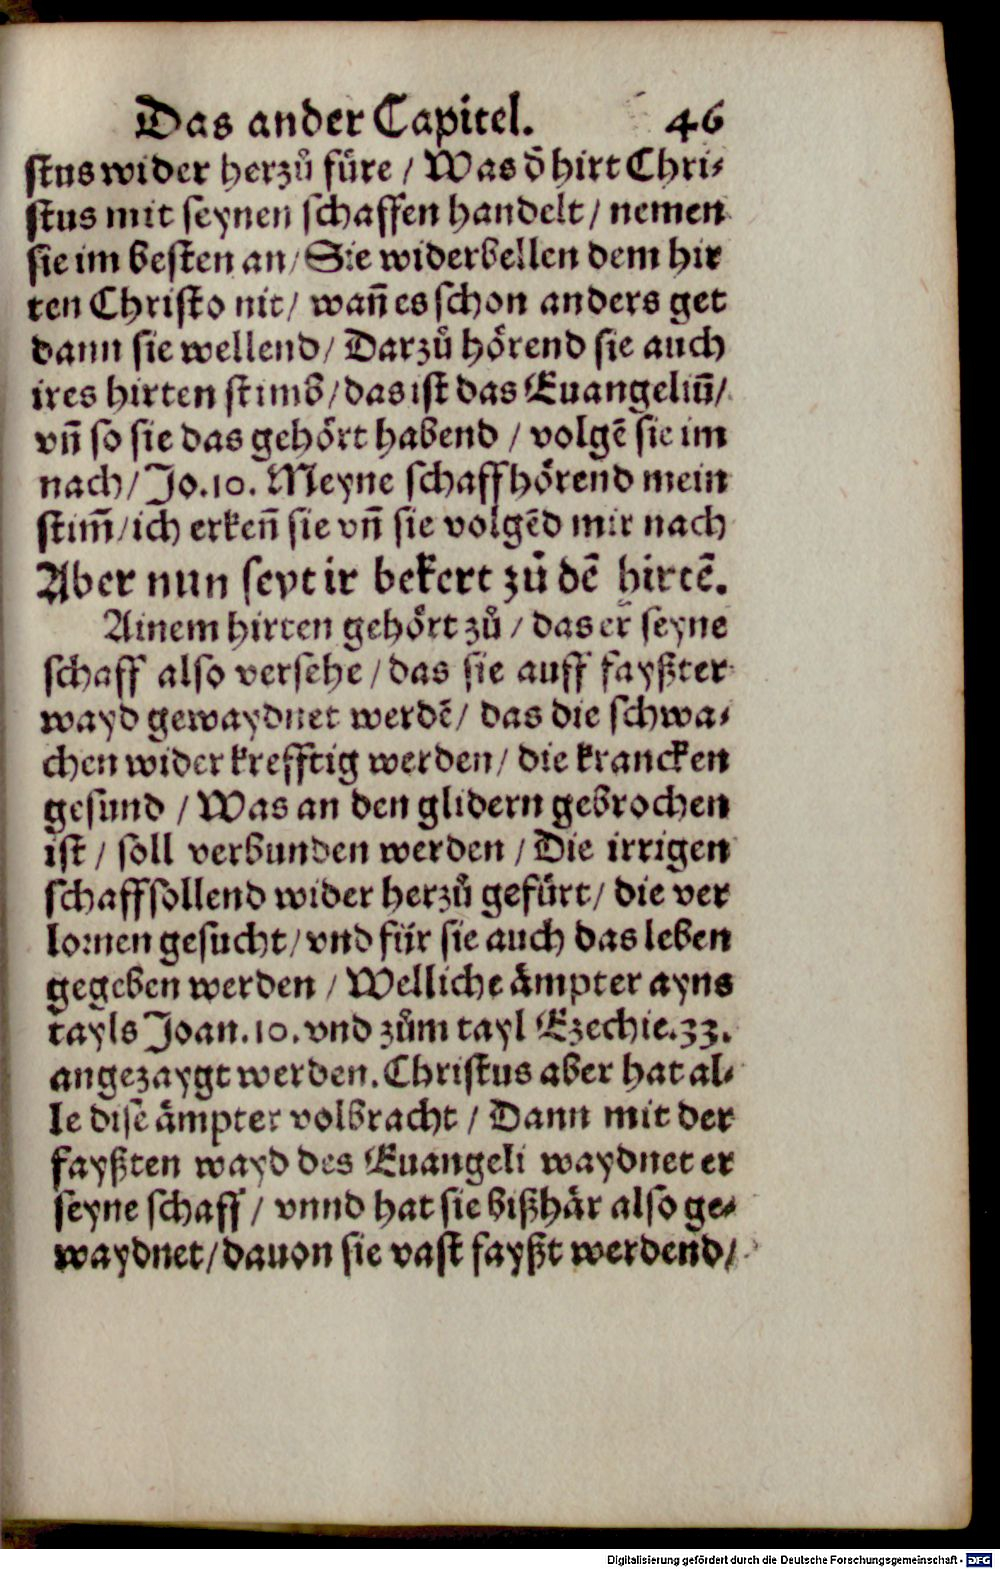 Das ander Capitel. 46
stus wider herzů füre / Was d̄ hirt Chri⸗
stus mit seynen schaffen handelt / nemen
sie im besten an / Sie widerbellen dem hir
ten Christo nit / wañ es schon anders get
dann sie wellend / Darzů hörend sie auch
ires hirten stimb / das ist das Euangeliū /
vñ so sie das gehört habend / volgē sie im
nach / Jo.10. Meyne schaff hörend mein
stim̄ / ich erkeñ sie vñ sie volgēd mir nach
Aber nun seyt ir bekert zů dē hirtē.
Ainem hirten gehört zů / das er seyne
schaff also versehe / das sie auff fayßter
wayd gewaydnet werdē / das die schwa⸗
chen wider krefftig werden / die krancken
gesund / Was an den glidern gebrochen
ist / soll verbunden werden / Die irrigen
schaff sollend wider herzů gefürt / die ver
lornen gesucht / vnd für sie auch das leben
gegeben werden / Welliche ämpter ayns
tayls Joan.10. vnd zům tayl Ezechie.33.
angezaygt werden. Christus aber hat al⸗
le dise ämpter volbracht / Dann mit der
fayßten wayd des Euangeli waydnet er
seyne schaff / vnnd hat sie bißhär also ge⸗
waydnet / dauon sie vast fayßt werdend /
Digitalisierung gefördert durch die Deutsche Forschungsgemeinschaft - DFG